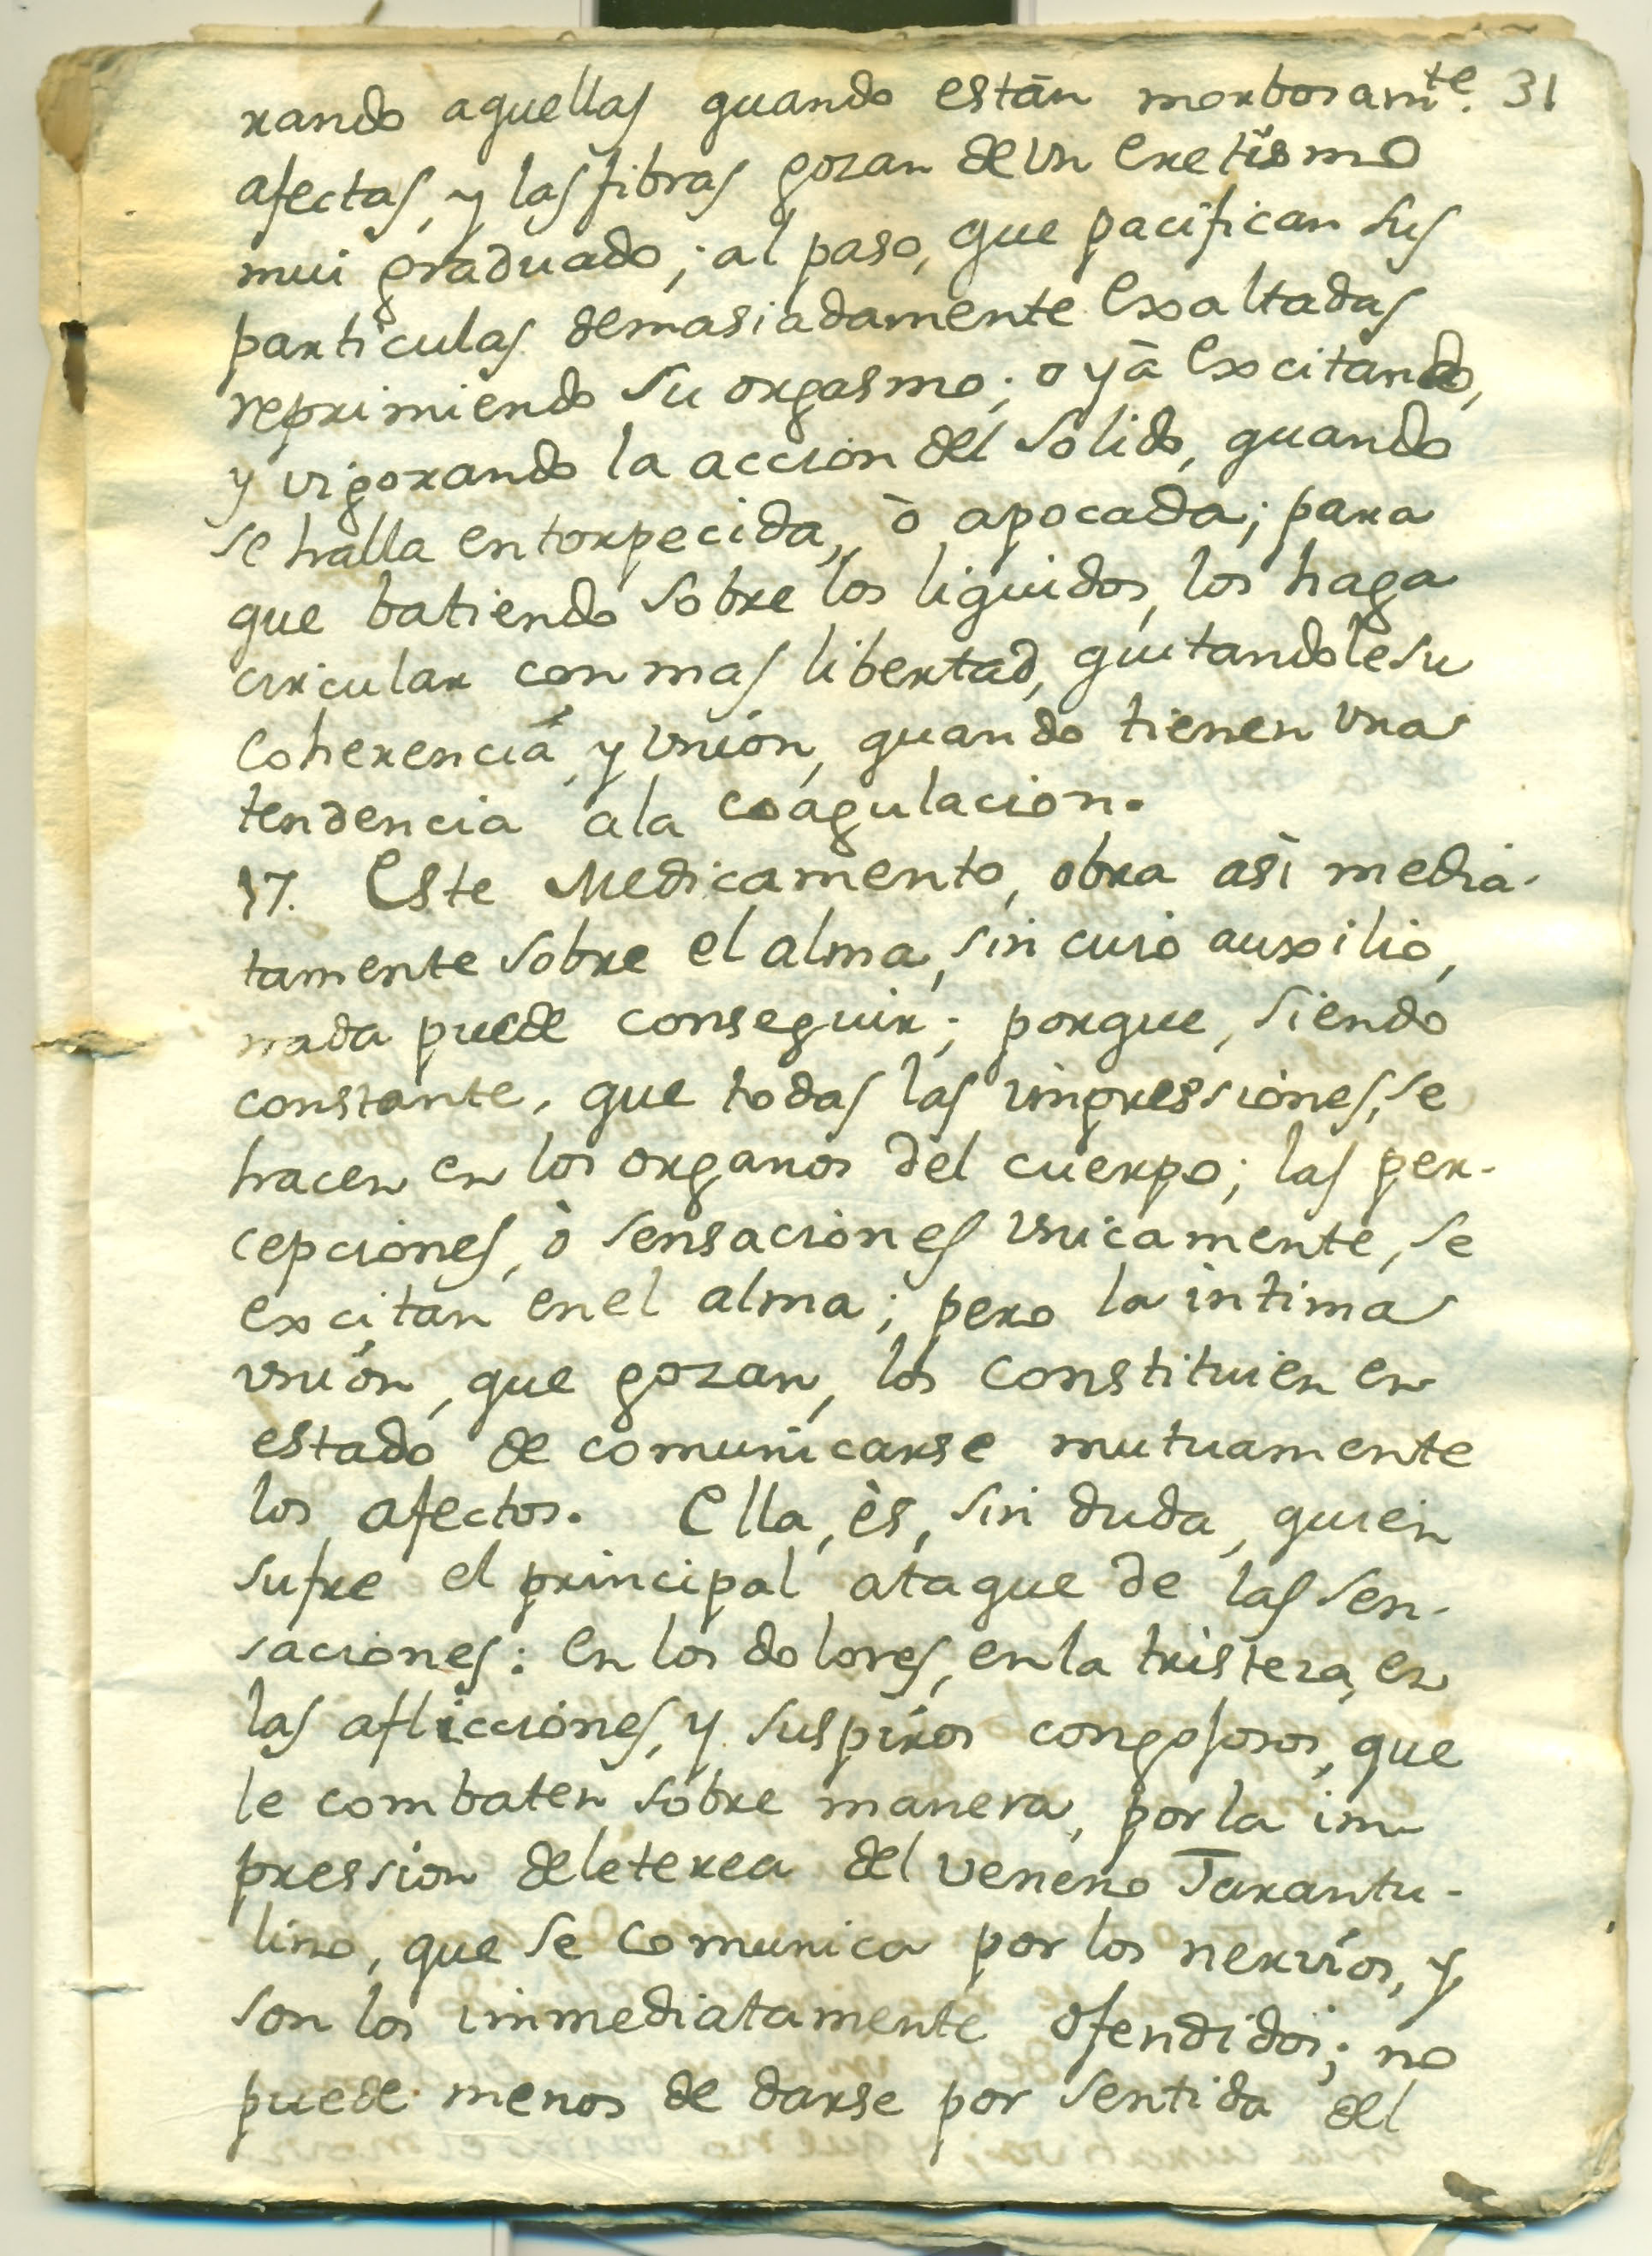 rando aquellas quando están morbosamte. 31
afectas, y las fibras gozan de un eretismo
mui graduado; al paso, que pacifican sus
particulas demasiadamente exaltadas
reprimiendo su orgasmo; o yá excitando,
y vigorando la accion del solido, quando
se halla entorpecida, ò apocada; para
que batiendo sobre los liquidos, los haga
circular con mas libertad, quitandole su
coherencia, y unión, quando tienen una
tendencia a la coagulacion.
17. Este Medicamento, obra asi media-
tamente sobre el alma, sin cuio auxilio,
nada puede conseguir; porque, siendo
constante, que todas las impressiones, se
hacen en los organos del cuerpo; las per-
cepciones, ò sensaciones unicamente, se
excitan en el alma; pero la intima
unión, que gozan, los constituien en
estado de comunicarse mutuamente
los afectos. Ella, ès, sin duda, quien
sufre el principal ataque de las sen-
saciones: en los dolores, en la tristeza, en
las aflicciones, y suspiros congojosos, que
le combaten sobre manera, por la im
pression deleterea del veneno Tarantu-
lino, que se comunica por los nervios, y
son los immediatamente ofendidos; no
puede menos de darse por sentida del